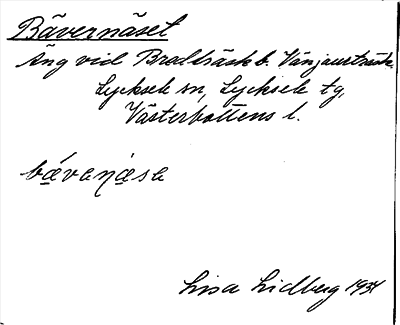 Bävernäset
Äng vid Bralträsk b. Vänjaurträsk
Lycksele sn, Lycksele tg,
Västerbottens l.
Lisa Lidberg 1934